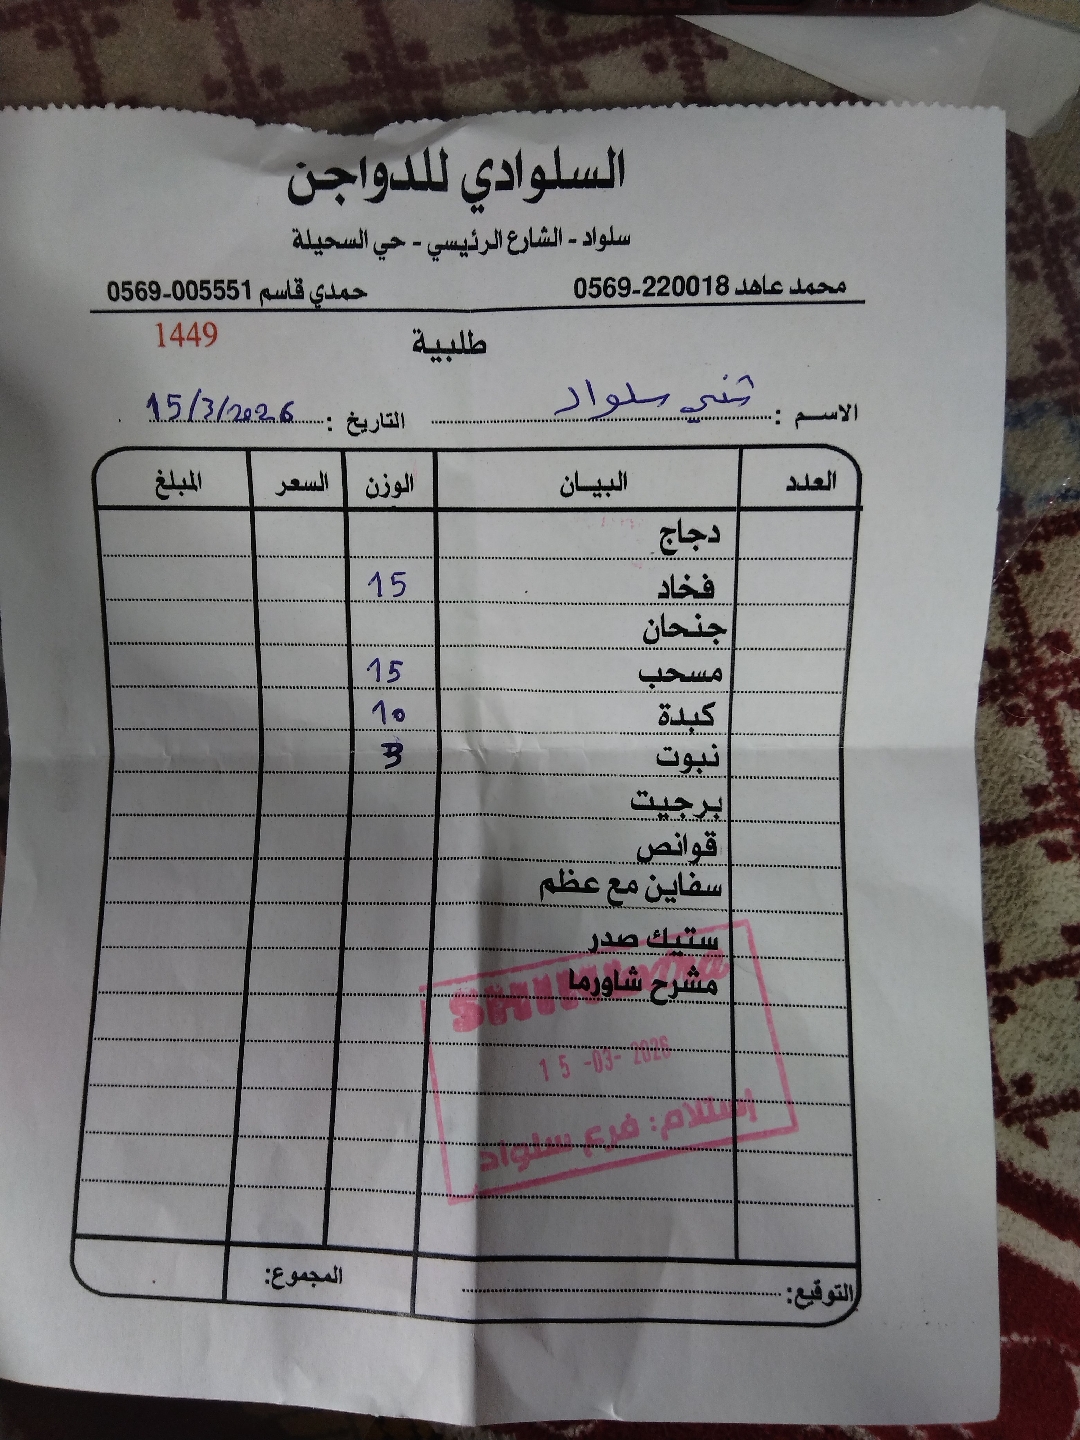 السلوادي للدواجن
سلواد - الشارع الرئيسي - حي السحيلة
محمد عاهد 0569-220018 حمدي قاسم 0569-005551
طلبية 1449
الاسم : شني سلواد التاريخ : 15/3/2026
العدد البيان الوزن السعر المبلغ
دجاج
فخاد 15
جنحان
مسحب 15
كبدة 10
نبوت 3
برجيت
قوانص
سفاين مع عظم
ستيك صدر
مشرح شاورما
15 -03- 2026
إستلام: فرع سلواد
المجموع:
التوقيع: